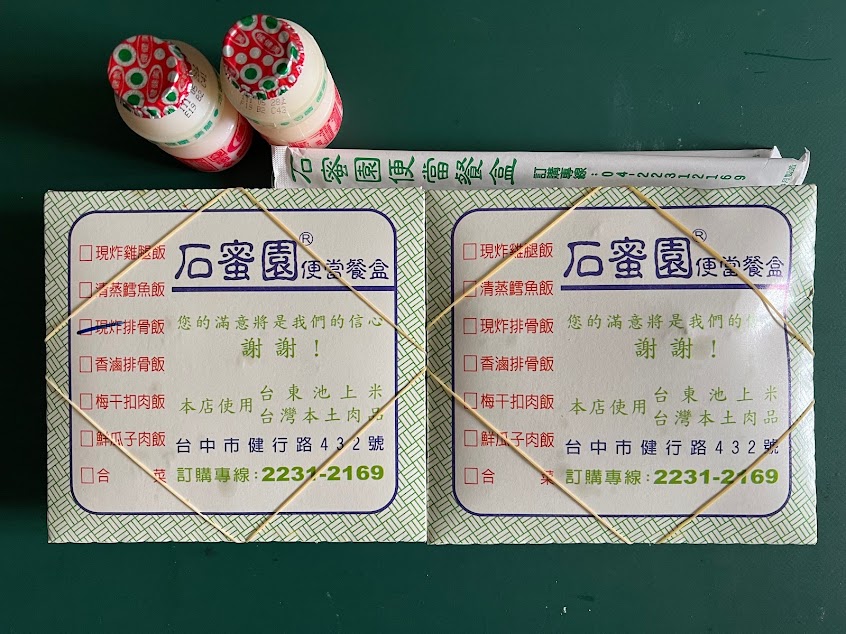 石蜜園便當餐盒 訂購專線:04-22312169
石蜜園®便當餐盒
□現炸雞腿飯
□清蒸鱈魚飯
□現炸排骨飯
□香滷排骨飯
□梅干扣肉飯
□鮮瓜子肉飯
□合 菜
您的滿意將是我們的信心
謝謝!
本店使用 台東池上米
台灣本土肉品
台中市健行路432號
訂購專線:2231-2169
石蜜園®便當餐盒
□現炸雞腿飯
□清蒸鱈魚飯
□現炸排骨飯
□香滷排骨飯
□梅干扣肉飯
□鮮瓜子肉飯
□合 菜
您的滿意將是我們的信
謝謝!
本店使用 台東池上米
台灣本土肉品
台中市健行路432號
訂購專線:2231-2169